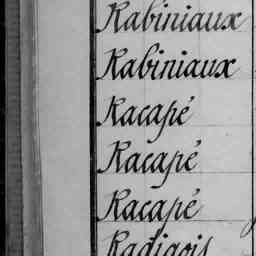 Rabiniaux
Rabiniaux
Racapé
Racapé
Racapé
Radigois